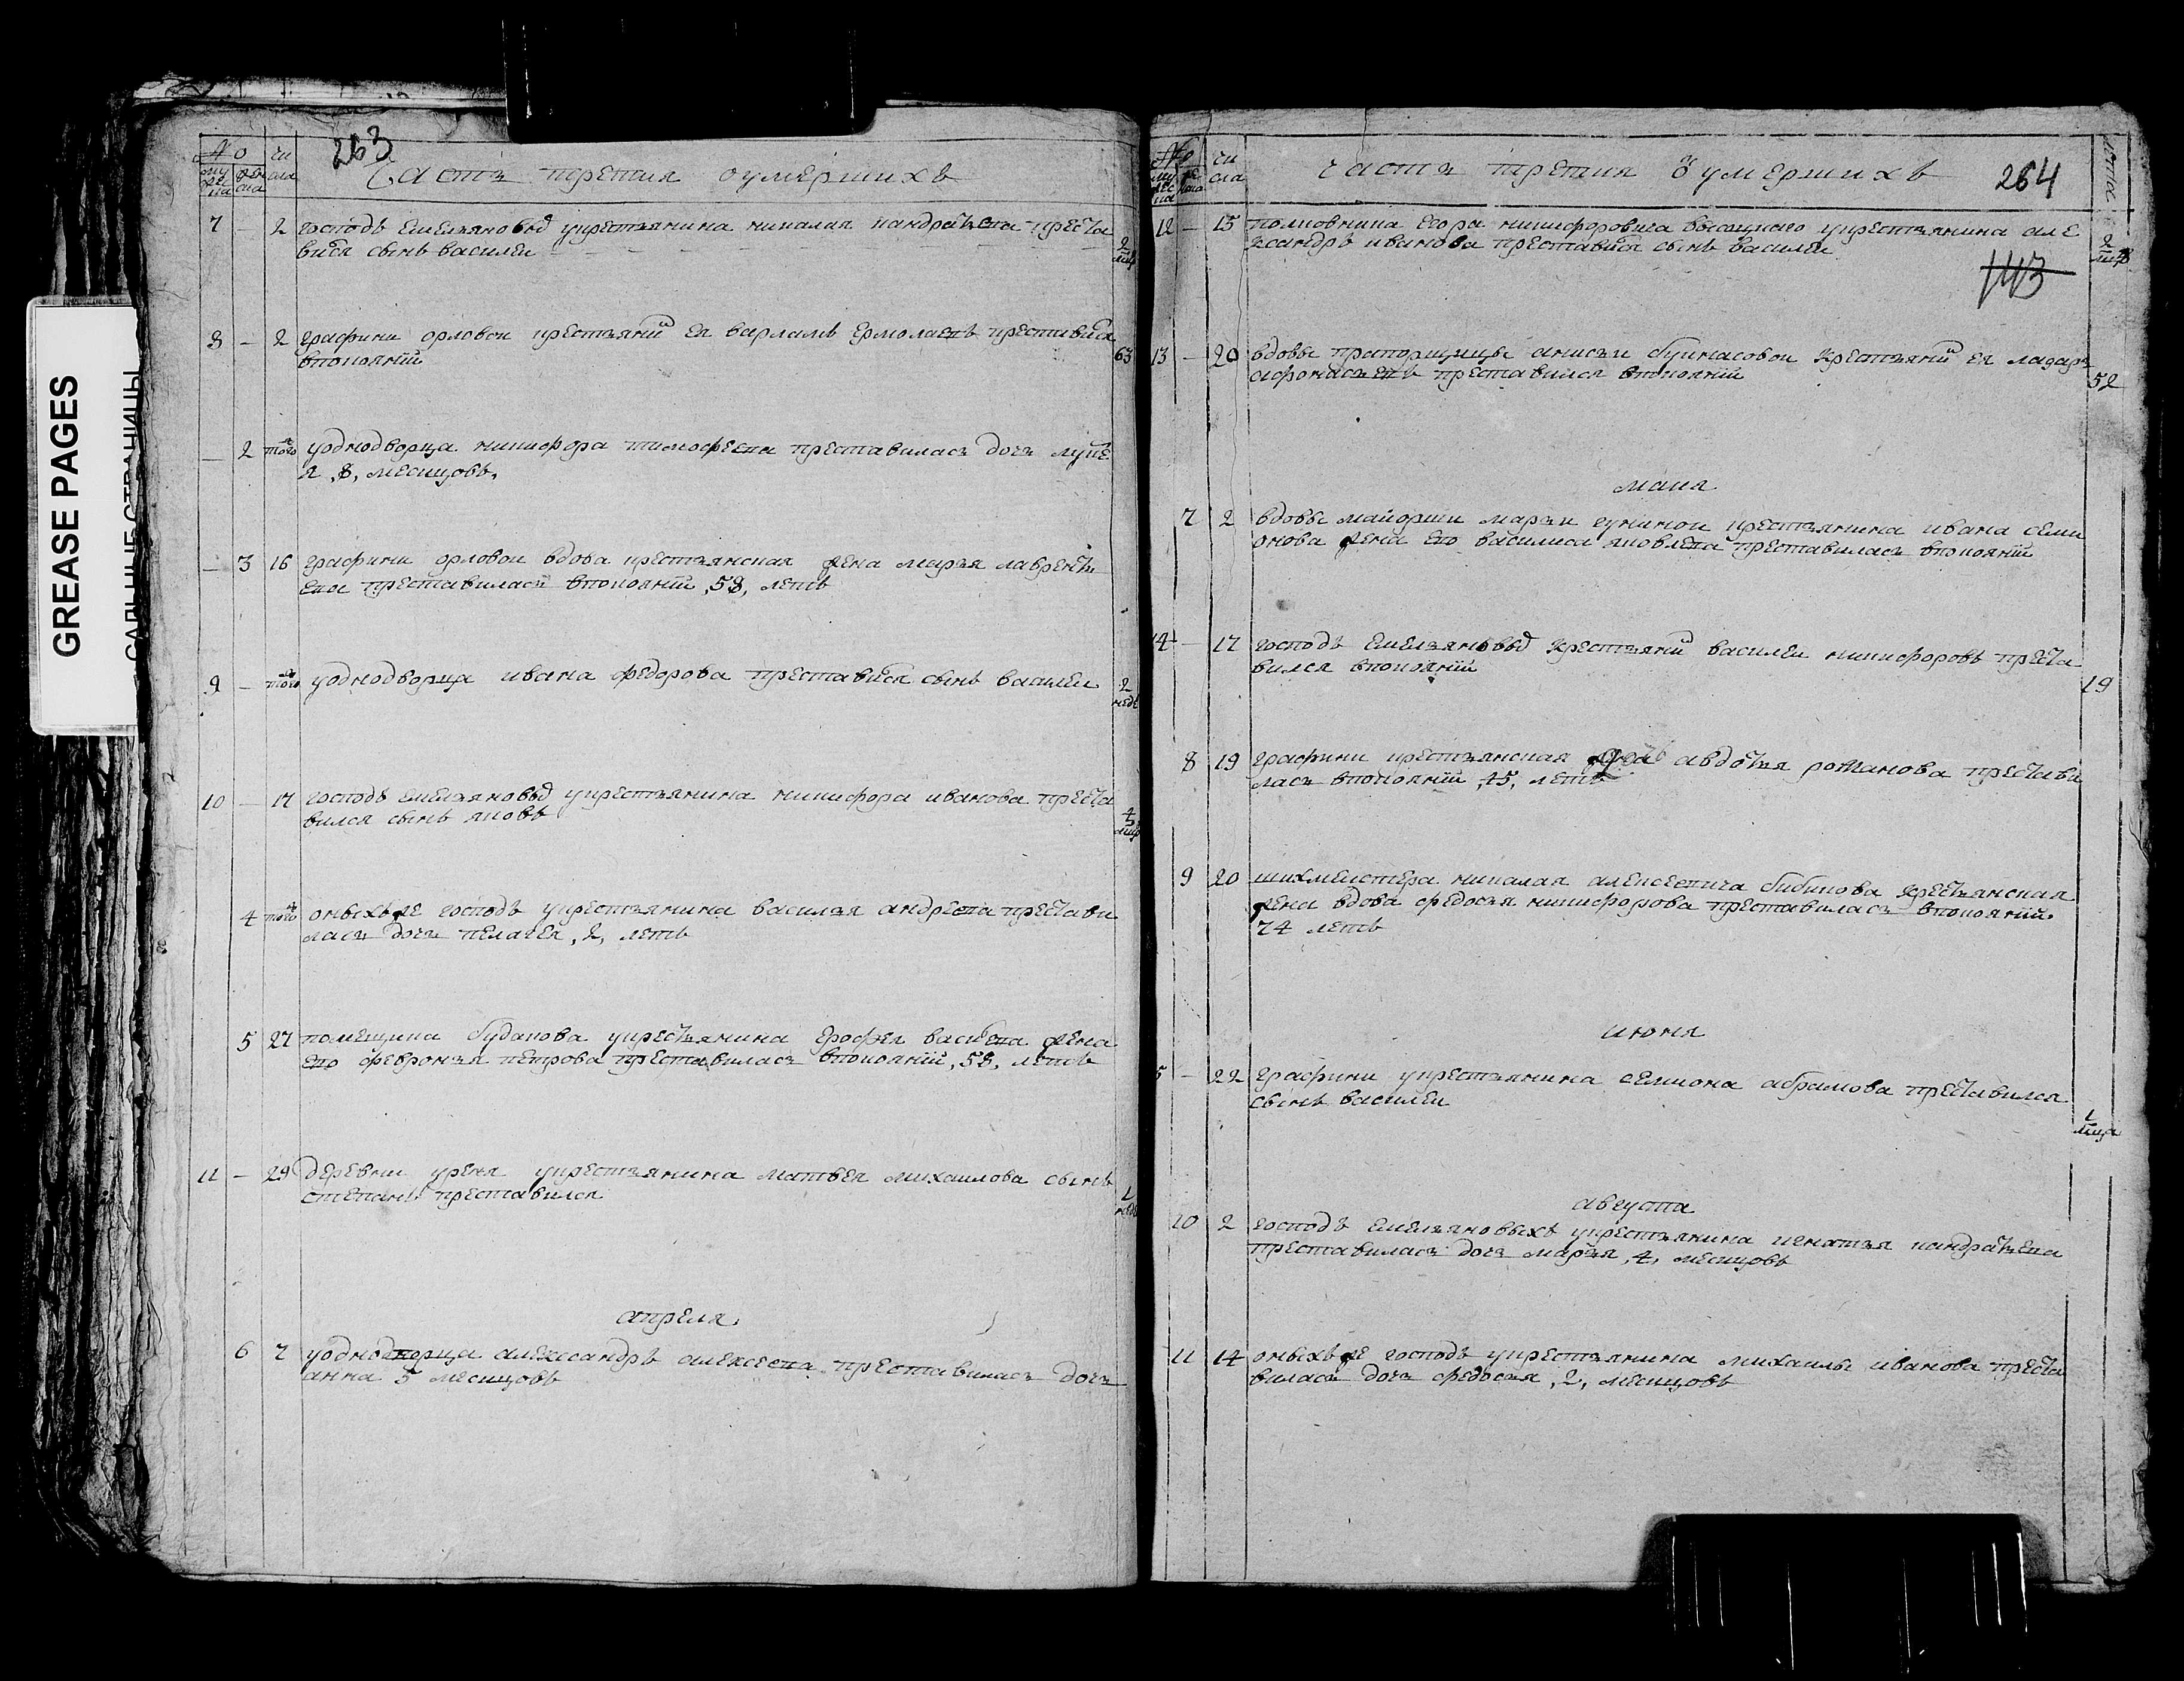 GREASE PAGES
САЛЬНЫЕ СТРАНИЦЫ
263
№
му же ска
жен ска
чи сла
Часть третия оумерших
7 - 2 господъ емельяновых укрестьянина николая кандратьева преста
вился сынъ василеи 2 мцв
8 - 2 графини орловои крестьянинъ ея варламъ ермолаевъ преставился
впокоянии 63
- 2 того уоднодворца никифора тимофеева преставилась дочь лукѣ
я ,8, месяцовъ,
- 3 16 графини орловои вдова крестьянская жена марья лавренть
ева преставилась впокоянии ,58, летъ
9 - того уоднодворца ивана федорова преставился сынъ василеи 2 недѣ
10 - 17 господъ емельяновых укрестьянина никифора иванова преста
вился сынъ яковъ 4 мцв
4 того оныхъ же господъ укрестьянина василья андреева престави
лась дочь пелагея ,2, летъ
5 27 помещика будакова укрестьянина ерофея васильева жена
ево февронья петрова преставилась впокоянии ,58, летъ
11 - 29 деревни уреня укрестьянина матвея михаилова сынъ
степанъ преставился 1 недѣ
апреля
6 7 уоднодворца александръ алексеева преставилась дочь
анна 5 месяцовъ
№
му жес ка
же ска
чи сла
часть третия о умершихъ 264
лѣта
12 - 15 полковника егора никифоровича высоцкого укрестьянина але
ксандръ иванова преставился сынъ василеи 2 мцв
143
13 - 20 вдовы прапорщицы анисьи буикасовои крестьянинъ ея лазарь
афонасьевъ преставился впокоянии 52
маия
7 2 вдовы маиорши марьи гукинои крестьянина ивана семи
онова жена ево василиса яковлева преставилась впокоянии
14 - 17 господъ емельяновых крестьянинъ василеи никифоровъ преста
вился впокоянии 19
8 19 графини крестьянская авдотья романова престави
лась впокоянии ,45, летъ
9 20 шихмеистера николая алексеевича бибикова крестьянская
жена вдова федосья никифорова преставилась впокоянии
74 летъ
июня
5 - 22 графини укрестьянина семиона абрамова преставился
сынъ василеи 1 мца
августа
10 2 господъ емельяновыхъ укрестьянина игнатья кандратьева
преставилась дочь марья ,4, месяцовъ
11 14 оныхъ же господъ укрестьянина михаилы иванова преста
вилась дочь федосья ,2, месяцовъ